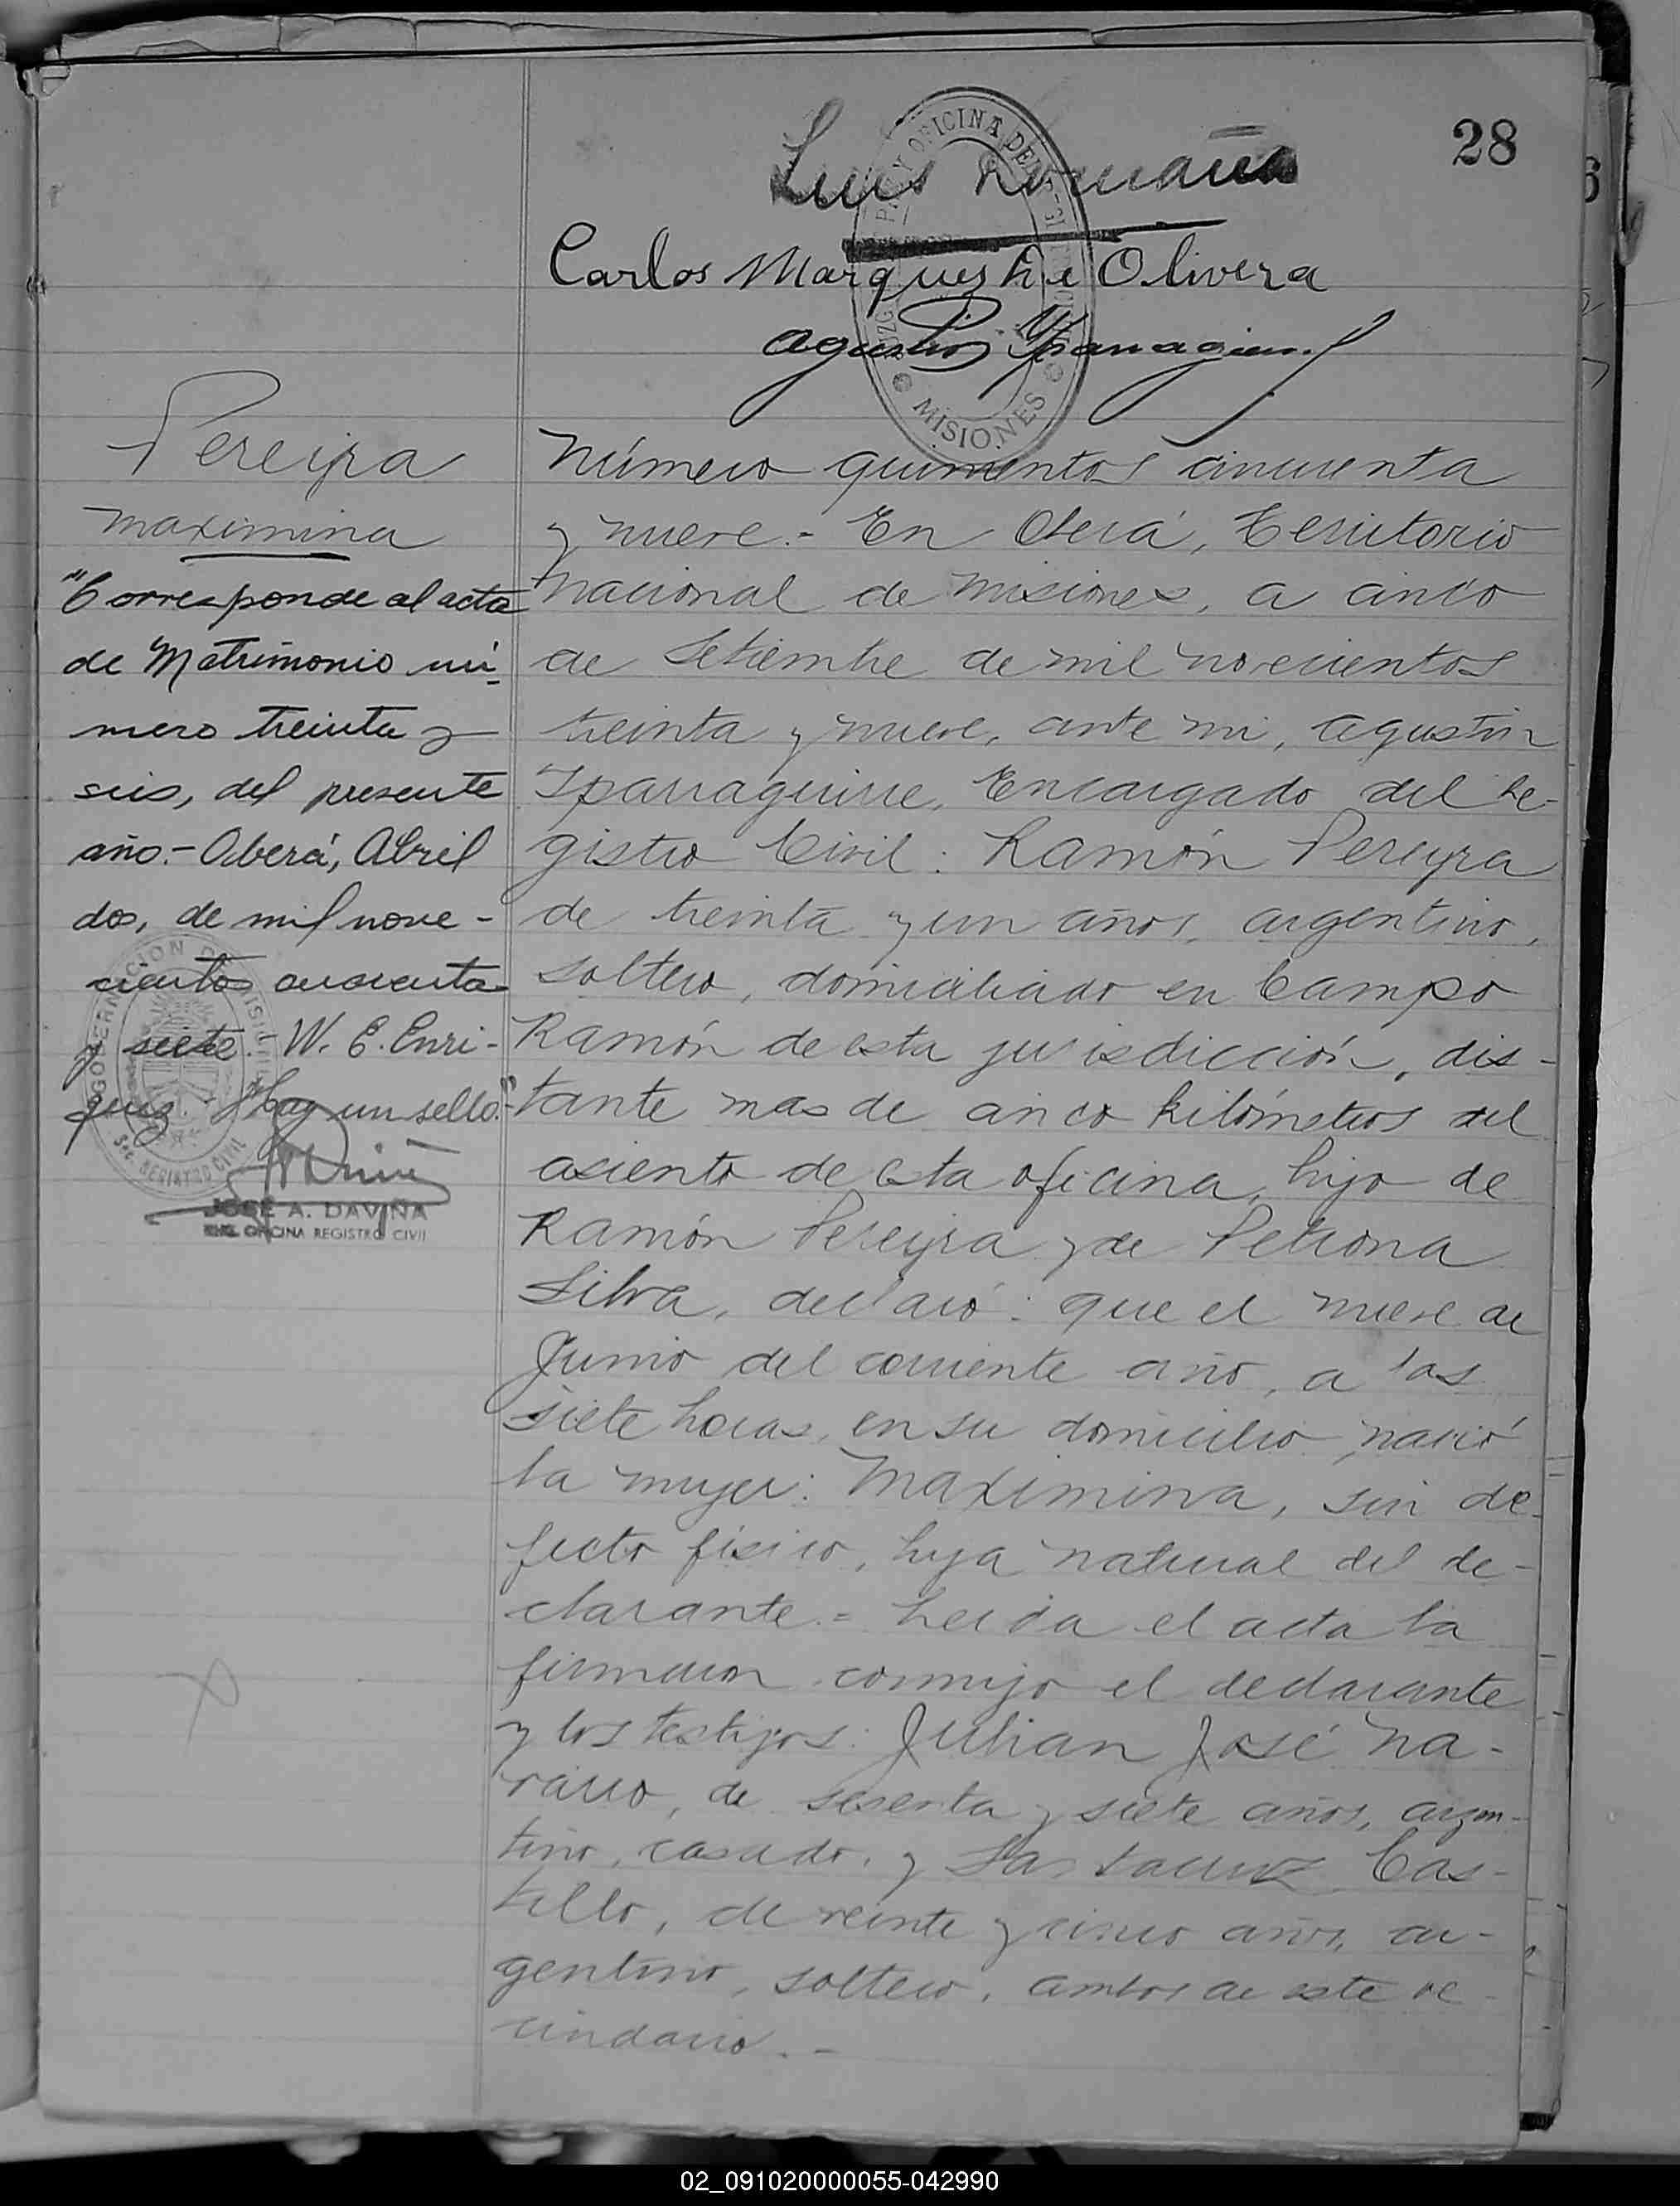 28
Luis Romaña
Carlos Marques de Olivera
JUZGADO DE PAZ Y OFICINA DEL REGISTRO CIVIL
MISIONES
Pereyra
Maximina
"Corresponde al acta
de Matrimonio nú-
mero treinta y
seis, del presente
año.- Oberá, Abril
dos, de mil nove-
cientos cuarenta
y siete.- W. E. Enri-
quez - Hay un sello."-
GOBERNACION DE MISIONES
SEC. REGISTRO CIVIL
JOSÉ A. DAVIÑA
ENC. OFICINA REGISTRO CIVIL
Número quinientos cincuenta
y nueve.- En Oberá, Territorio
Nacional de Misiones, a cinco
de Setiembre de mil novecientos
treinta y nueve, ante mi, Agustin
Yparraguirre, Encargado del Re-
gistro Civil: Ramón Pereyra
de treinta y un años, argentino,
soltero, domiciliado en Campo
Ramón de esta jurisdicción, dis-
tante mas de cinco kilómetros del
asiento de esta oficina, hijo de
Ramón Pereyra y de Petrona
Silva, declaró: que el nueve de
Junio del corriente año, a las
siete horas, en su domicilio, nació
la mujer: Maximina, sin de-
fecto físico, hija natural del de-
clarante.- Leida el acta la
firmaron conmigo el declarante
y los testigos: Julian José Na-
varro, de sesenta y siete años, argen-
tino, casado, y Santacruz Cas-
tillo, de veinte y cinco años, ar-
gentino, soltero, ambos de este ve-
cindario.-
02_091020000055-042990